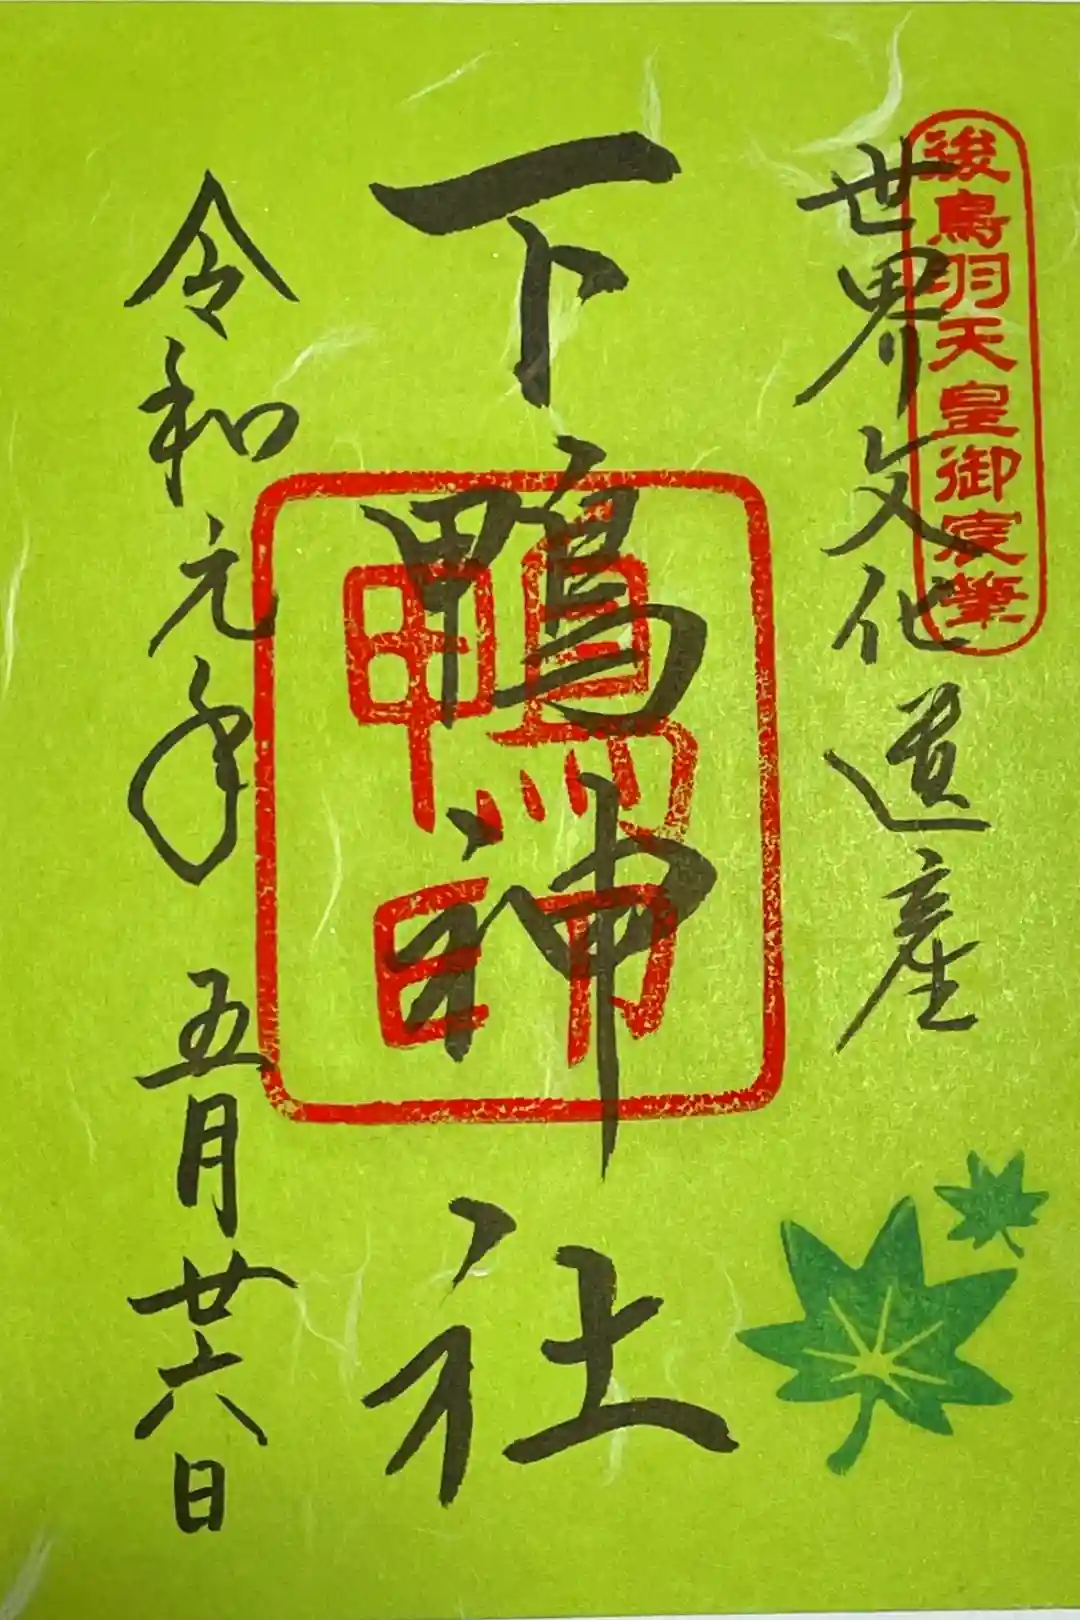 後鳥羽天皇御宸筆
世界文化遺産
下鴨神社
鴨印
令和元年 五月廿六日